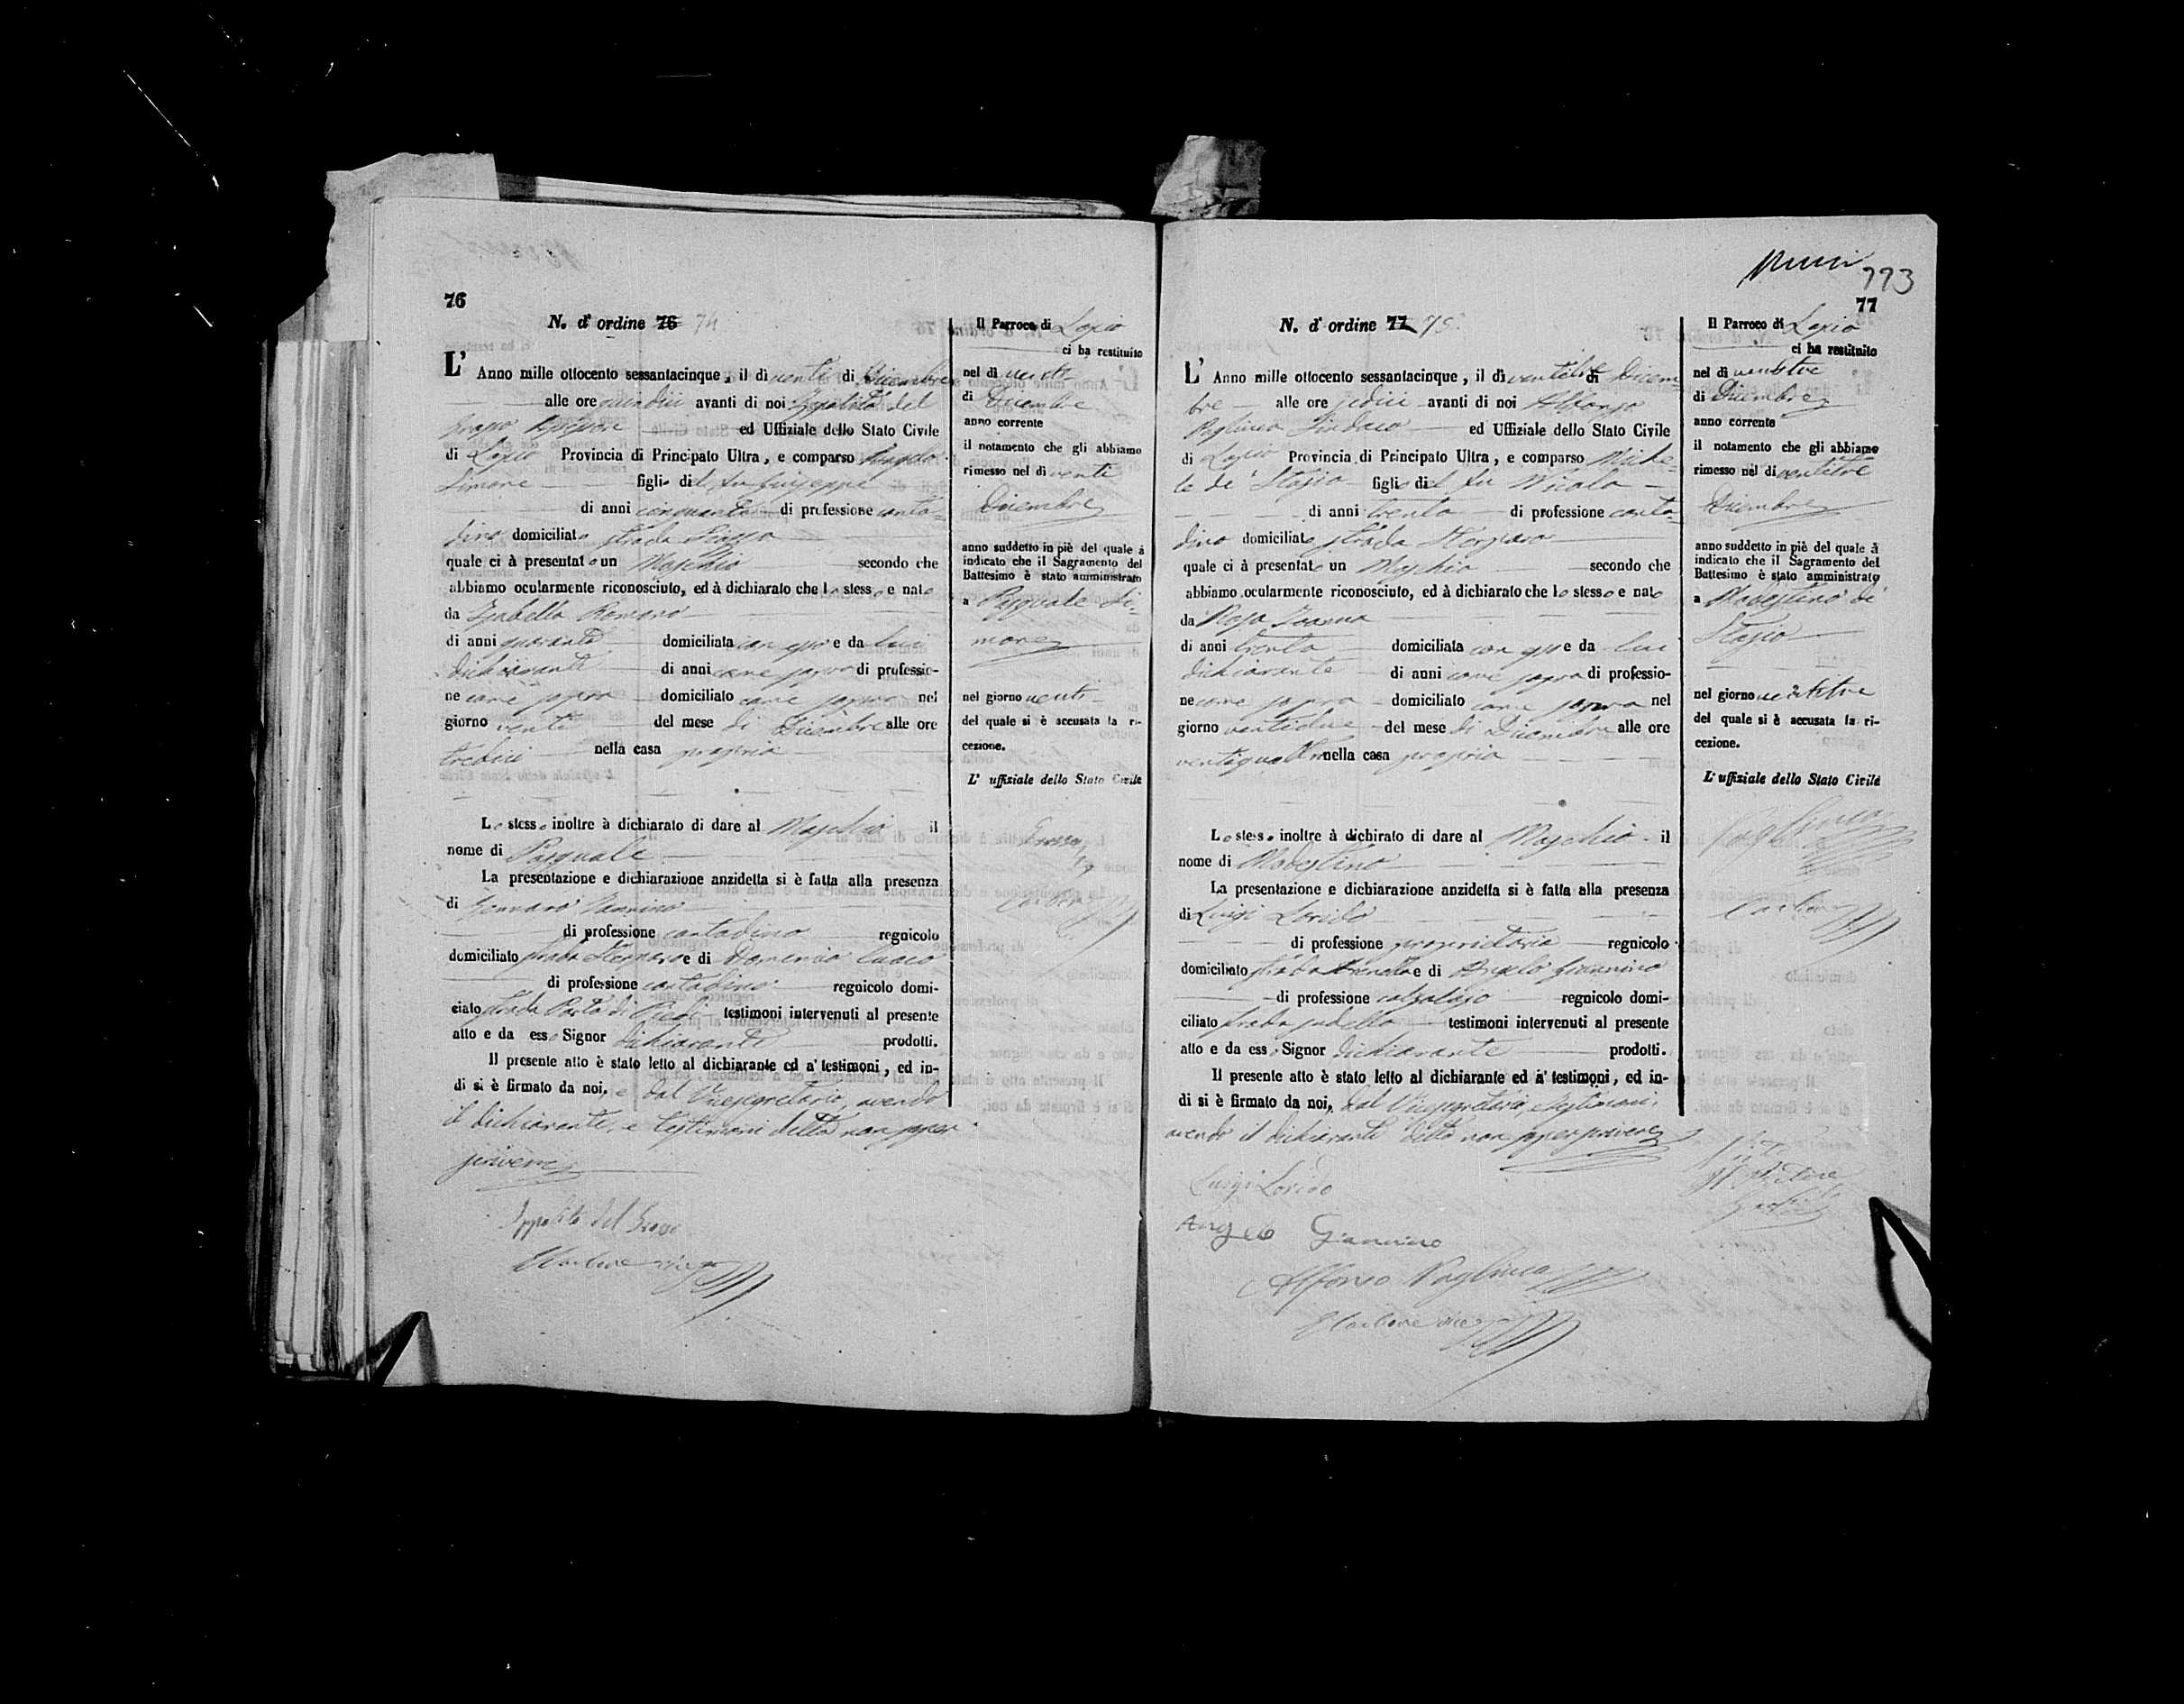 76
N. d'ordine 76 74
L'Anno mille ottocento sessantacinque, il dì venti di Dicembre
alle ore quindici avanti di noi Ippolito del
Grosso ed Uffiziale dello Stato Civile
di Lapio Provincia di Principato Ultra, e comparso Angelo
Simone figlio del fu Giuseppe
di anni cinquanta di professione conta=
dino domiciliato strada Piazza
quale ci à presentato un Maschio secondo che
abbiamo ocularmente riconosciuto, ed à dichiarato che lo stesso e nato
da Isabella Romano
di anni quaranta domiciliata con esso e da lui
dichiarante di anni come sopra di professio-
ne come sopra domiciliato come sopra nel
giorno venti del mese di Dicembre alle ore
tredici nella casa propria
Lo stesso inoltre à dichiarato di dare al Maschio il
nome di Pasquale
La presentazione e dichiarazione anzidetta si è fatta alla presenza
di Gennaro
di professione contadino regnicolo
domiciliato strada e di Domenico
di professione contadino regnicolo domi-
ciato strada Porta di testimoni intervenuti al presente
atto e da esso Signor dichiarante prodotti.
Il presente atto è stato letto al dichiarante ed a' testimoni, ed in-
di si è firmato da noi, e dal Vicesegretario, avendo
il dichiarante, e testimoni detto non saper
scrivere
Ippolito del Grosso
Il Parroco di Lapio
ci ha restituito
nel dì venti
di Dicembre
anno corrente
il notamento che gli abbiamo
rimesso nel dì venti
Dicembre
anno suddetto in piè del quale à
indicato che il Sagramento del
Battesimo è stato amministrato
a Pasquale Si-
mone
nel giorno venti
del quale si è accusata la ri-
cezione.
L'uffiziale dello Stato Civile
773
77
N. d'ordine 77 75
L'Anno mille ottocento sessantacinque, il dì ventitre di Dicem=
bre alle ore sedici avanti di noi Alfonso
Pagliuca Sindaco ed Uffiziale dello Stato Civile
di Lapio Provincia di Principato Ultra, e comparso Miche=
le de Stasio figlio del fu Nicola
di anni trenta di professione conta=
dino domiciliato strada
quale ci à presentato un Maschio secondo che
abbiamo ocularmente riconosciuto, ed à dichiarato che lo stesso e nato
da Rosa
di anni trenta domiciliata con esso e da lui
dichiarante di anni come sopra di professio-
ne come sopra domiciliato come sopra nel
giorno ventidue del mese di Dicembre alle ore
ventiquattro nella casa propria
Lo stesso inoltre à dichirato di dare al Maschio il
nome di Modestino
La presentazione e dichiarazione anzidetta si è fatta alla presenza
di Luigi Loredo
di professione proprietario regnicolo
domiciliato strada e di Angelo Giannino
di professione calzolajo regnicolo domi-
ciliato strada testimoni intervenuti al presente
atto e da esso Signor dichiarante prodotti.
Il presente atto è stato letto al dichiarante ed a' testimoni, ed in-
di si è firmato da noi, dal Vicesegretario, e testimoni,
avendo il dichiarante detto non saper scrivere
Luigi Loredo
Angelo Giannino
Alfonso Pagliuca
Il Parroco di Lapio
ci ha restituito
nel dì ventitre
di Dicembre
anno corrente
il notamento che gli abbiamo
rimesso nel dì ventitre
Dicembre
anno suddetto in piè del quale à
indicato che il Sagramento del
Battesimo è stato amministrato
a Modestino de
Stasio
nel giorno ventitre
del quale si è accusata la ri-
cezione.
L'uffiziale dello Stato Civile
Pagliuca